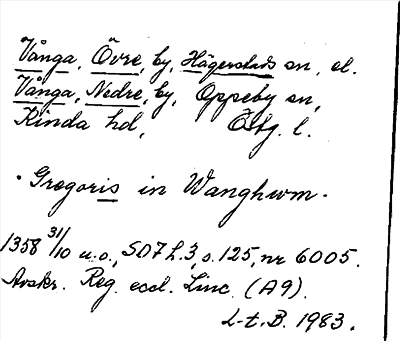 Vånga, Övre, by, Hägerstads sn, el.
Vånga, Nedre, by, Oppeby sn,
Kinda hd, Östg. l.
· Gregoris in Wanghwm ·
1358 31/10 u.o., SD7 h. 3, s. 125, nr 6005.
Avskr. Reg. eccl. Linc. (A9).
L-t. B. 1983.